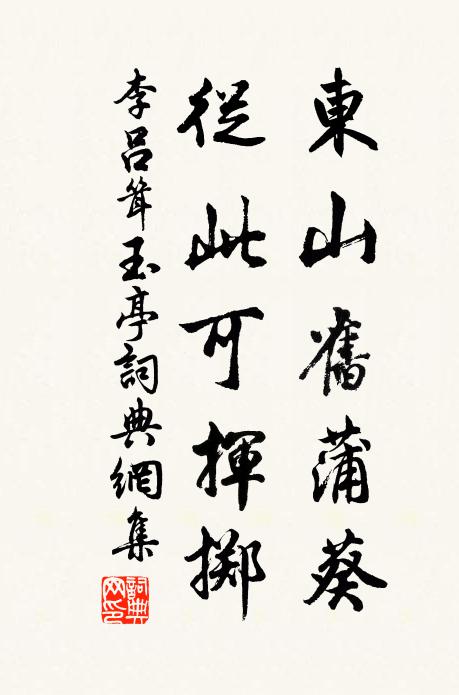 東山舊蒲葵
從此可揮擲
李呂聳玉亭詞典網集
詞典網印